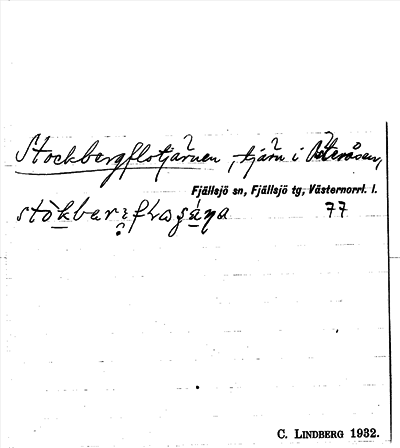 Stockbergflotjärnen, tjärn i Österåsen,
Fjällsjö sn, Fjällsjö tg, Västernorrl. l.
77
C. LINDBERG 1932.